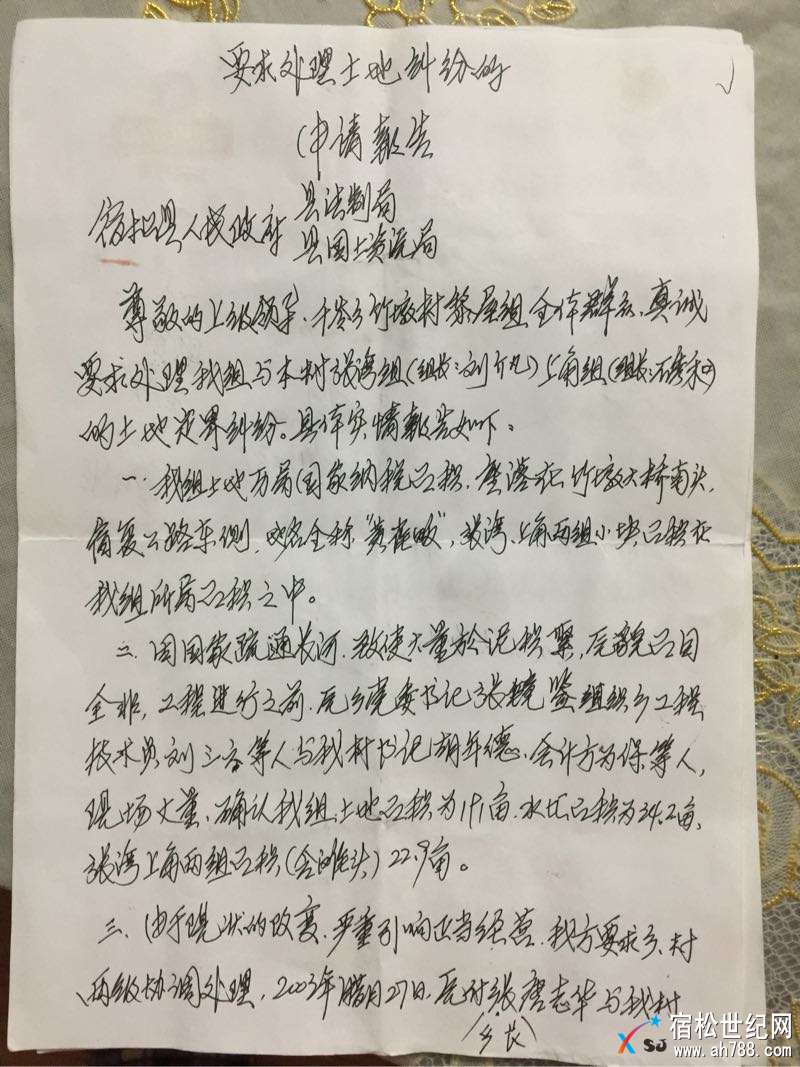 要求处理土地纠纷的
申请報告
宿松县人民政府
县法制局
县国土资沅局
尊敬的上级领导，千岑乡竹墩村 屋组全体群众，真诚
要求处理我组与本村张湾组（组长：刘介九）上角组（组长：石 ）
的土地边界纠纷。具体实情報告如下：
一. 我组土地历属国家纳税面积，座落在竹墩大桥南头，
宿复公路东侧，地名全称“ ”，张湾、上角两组小块面积在
我组所属面积之中。
二. 因国家疏通长河，致使大量於泥积累，原貌面目
全非，工程进行之前，原乡党委书记张 鉴组织乡工程
技术员刘三 等人与我村书记胡年德、会计方为保等人，
现场丈量，确认我组土地面积为191亩，水 面积为34.2亩，
张湾上角两组面积（含滩头）22.9亩。
三、由于现状的改变，严重引响正当经营，我方要求乡、村
两级协调处理，2003年腊月27日，原 唐志华与我村
（乡长）
宿松世纪网
SJ www.ah788.com